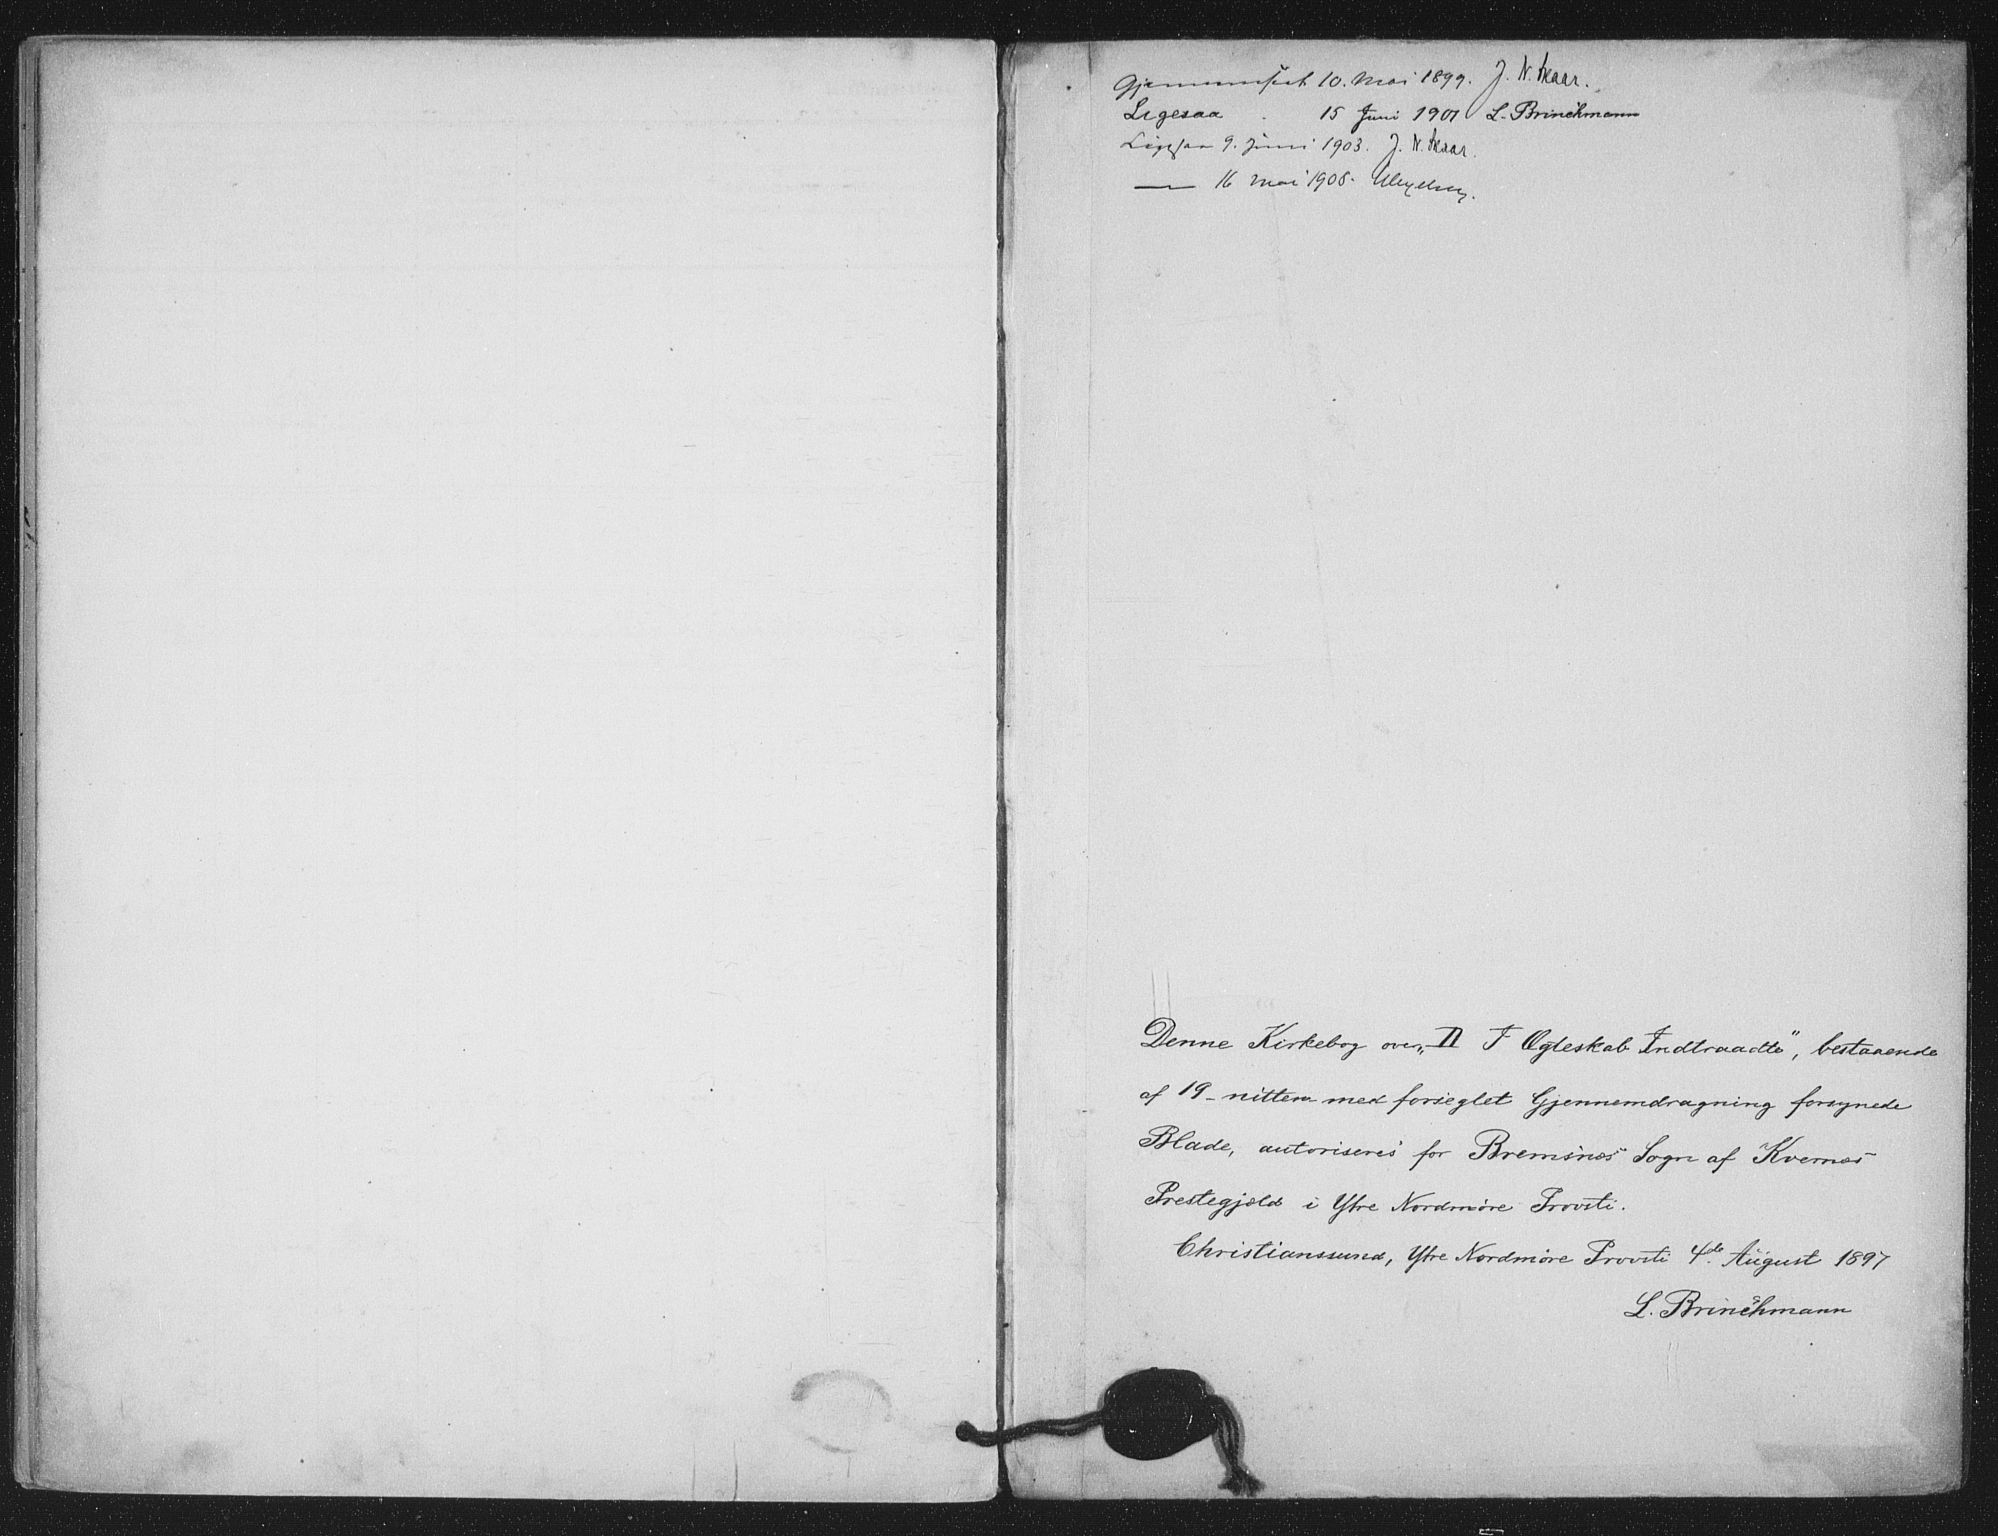 Gjennemseet 10. Mai 1899. J. N. Skaar.
Ligesaa 15 Juni 1901 L. Brinchmann
Ligesaa 9. Juni 1903. J. N. Skaar.
— 16 Mai 1908.
Denne Kirkebog over „II I Ægteskab Indtraadte", bestaaende
af 19 - nitten med forseglet Gjennemdragning forsynede
Blade, autoriseres for Bremsnæs Sogn af Kvernæs
Prestegjeld i Ytre Nordmöre Provsti.
Christianssund, Ytre Nordmöre Provsti 4de August 1897
L. Brinchmann